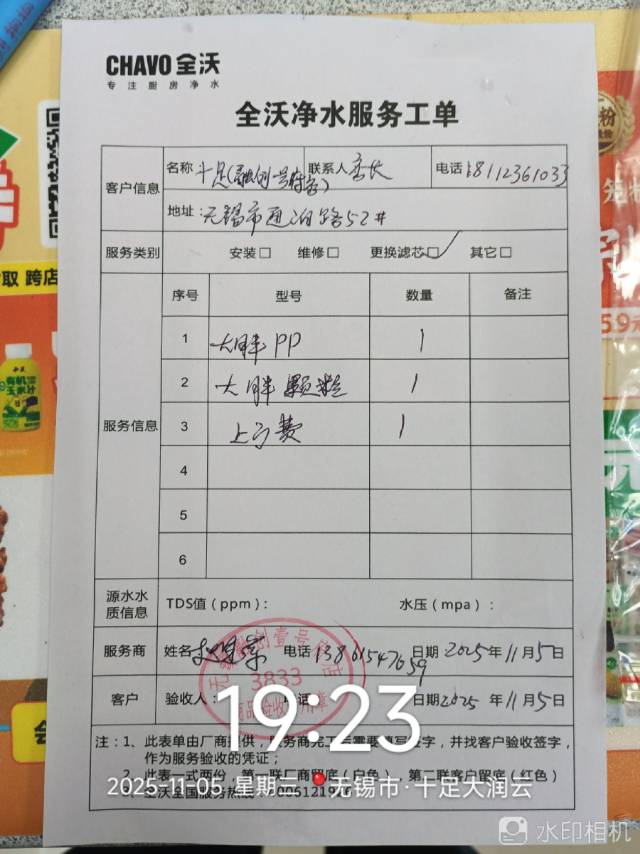 CHAVO 全沃
专注厨房净水
全沃净水服务工单
客户信息
名称 十足(融创一号 联系人 电话 18112361033
地址: 无锡市通 路52#
服务类别 安装□ 维修□ 更换滤芯□✓ 其它□
服务信息
序号 型号 数量 备注
1 大胖PP 1
2 大胖颗粒 1
3 上门费 1
4
5
6
源水水质信息 TDS值(ppm): 水压(mpa):
服务商 姓名 电话 13861547659 日期 2025年11月5日
客户 验收人: 日期 2025年11月5日
创壹号
3833
商品验收
19:23
注:1、此表单由厂商提供,服务商完工后需要填写签字,并找客户验收签字,
作为服务验收的凭证;
2、此表一式两份,第一联厂商留底(白色),第二联客户留底(红色)
3、全沃全国服务热线
2025-11-05 星期三 无锡市·十足大润云
水印相机
取 跨店
有机
玉米汁
粉
5.9元